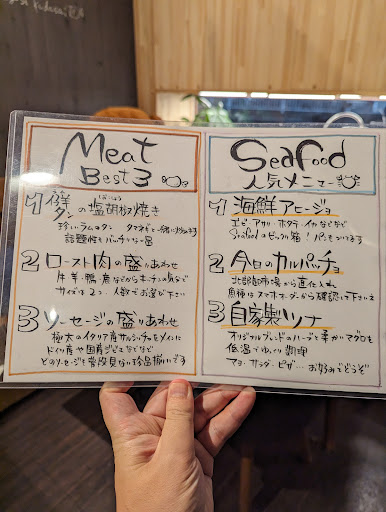 Meat
Best 3
1 タンの塩胡椒焼き
珍しいラムタン タマネギと一緒に炒めます
話題性もバッチリな一品
2 ロースト肉の盛りあわせ
牛・羊・鴨・鹿などから
サイズは2つ 人数でお選び下さい
3 ソーセージの盛りあわせ
極太のイタリア産サルシッチャをメインに
ドイツ産や国産ジビエなどなど
どのソーセージも普段見ない珍品揃いです
Seafood
人気メニュー
1 海鮮アヒージョ
エビ・アカリ・ホタテ・イカなどなど
Seafoodのビックリ箱! パンもつけます
2 今日のカルパッチョ
北部市場から直仕入れ
魚種はスマホオーダーから確認して下さいネ
3 自家製ツナ
オリジナルブレンドのハーブと夢かマグロを
低温でゆっくり調理
マヨ・サラダ・ピザ… お好みでどうぞ